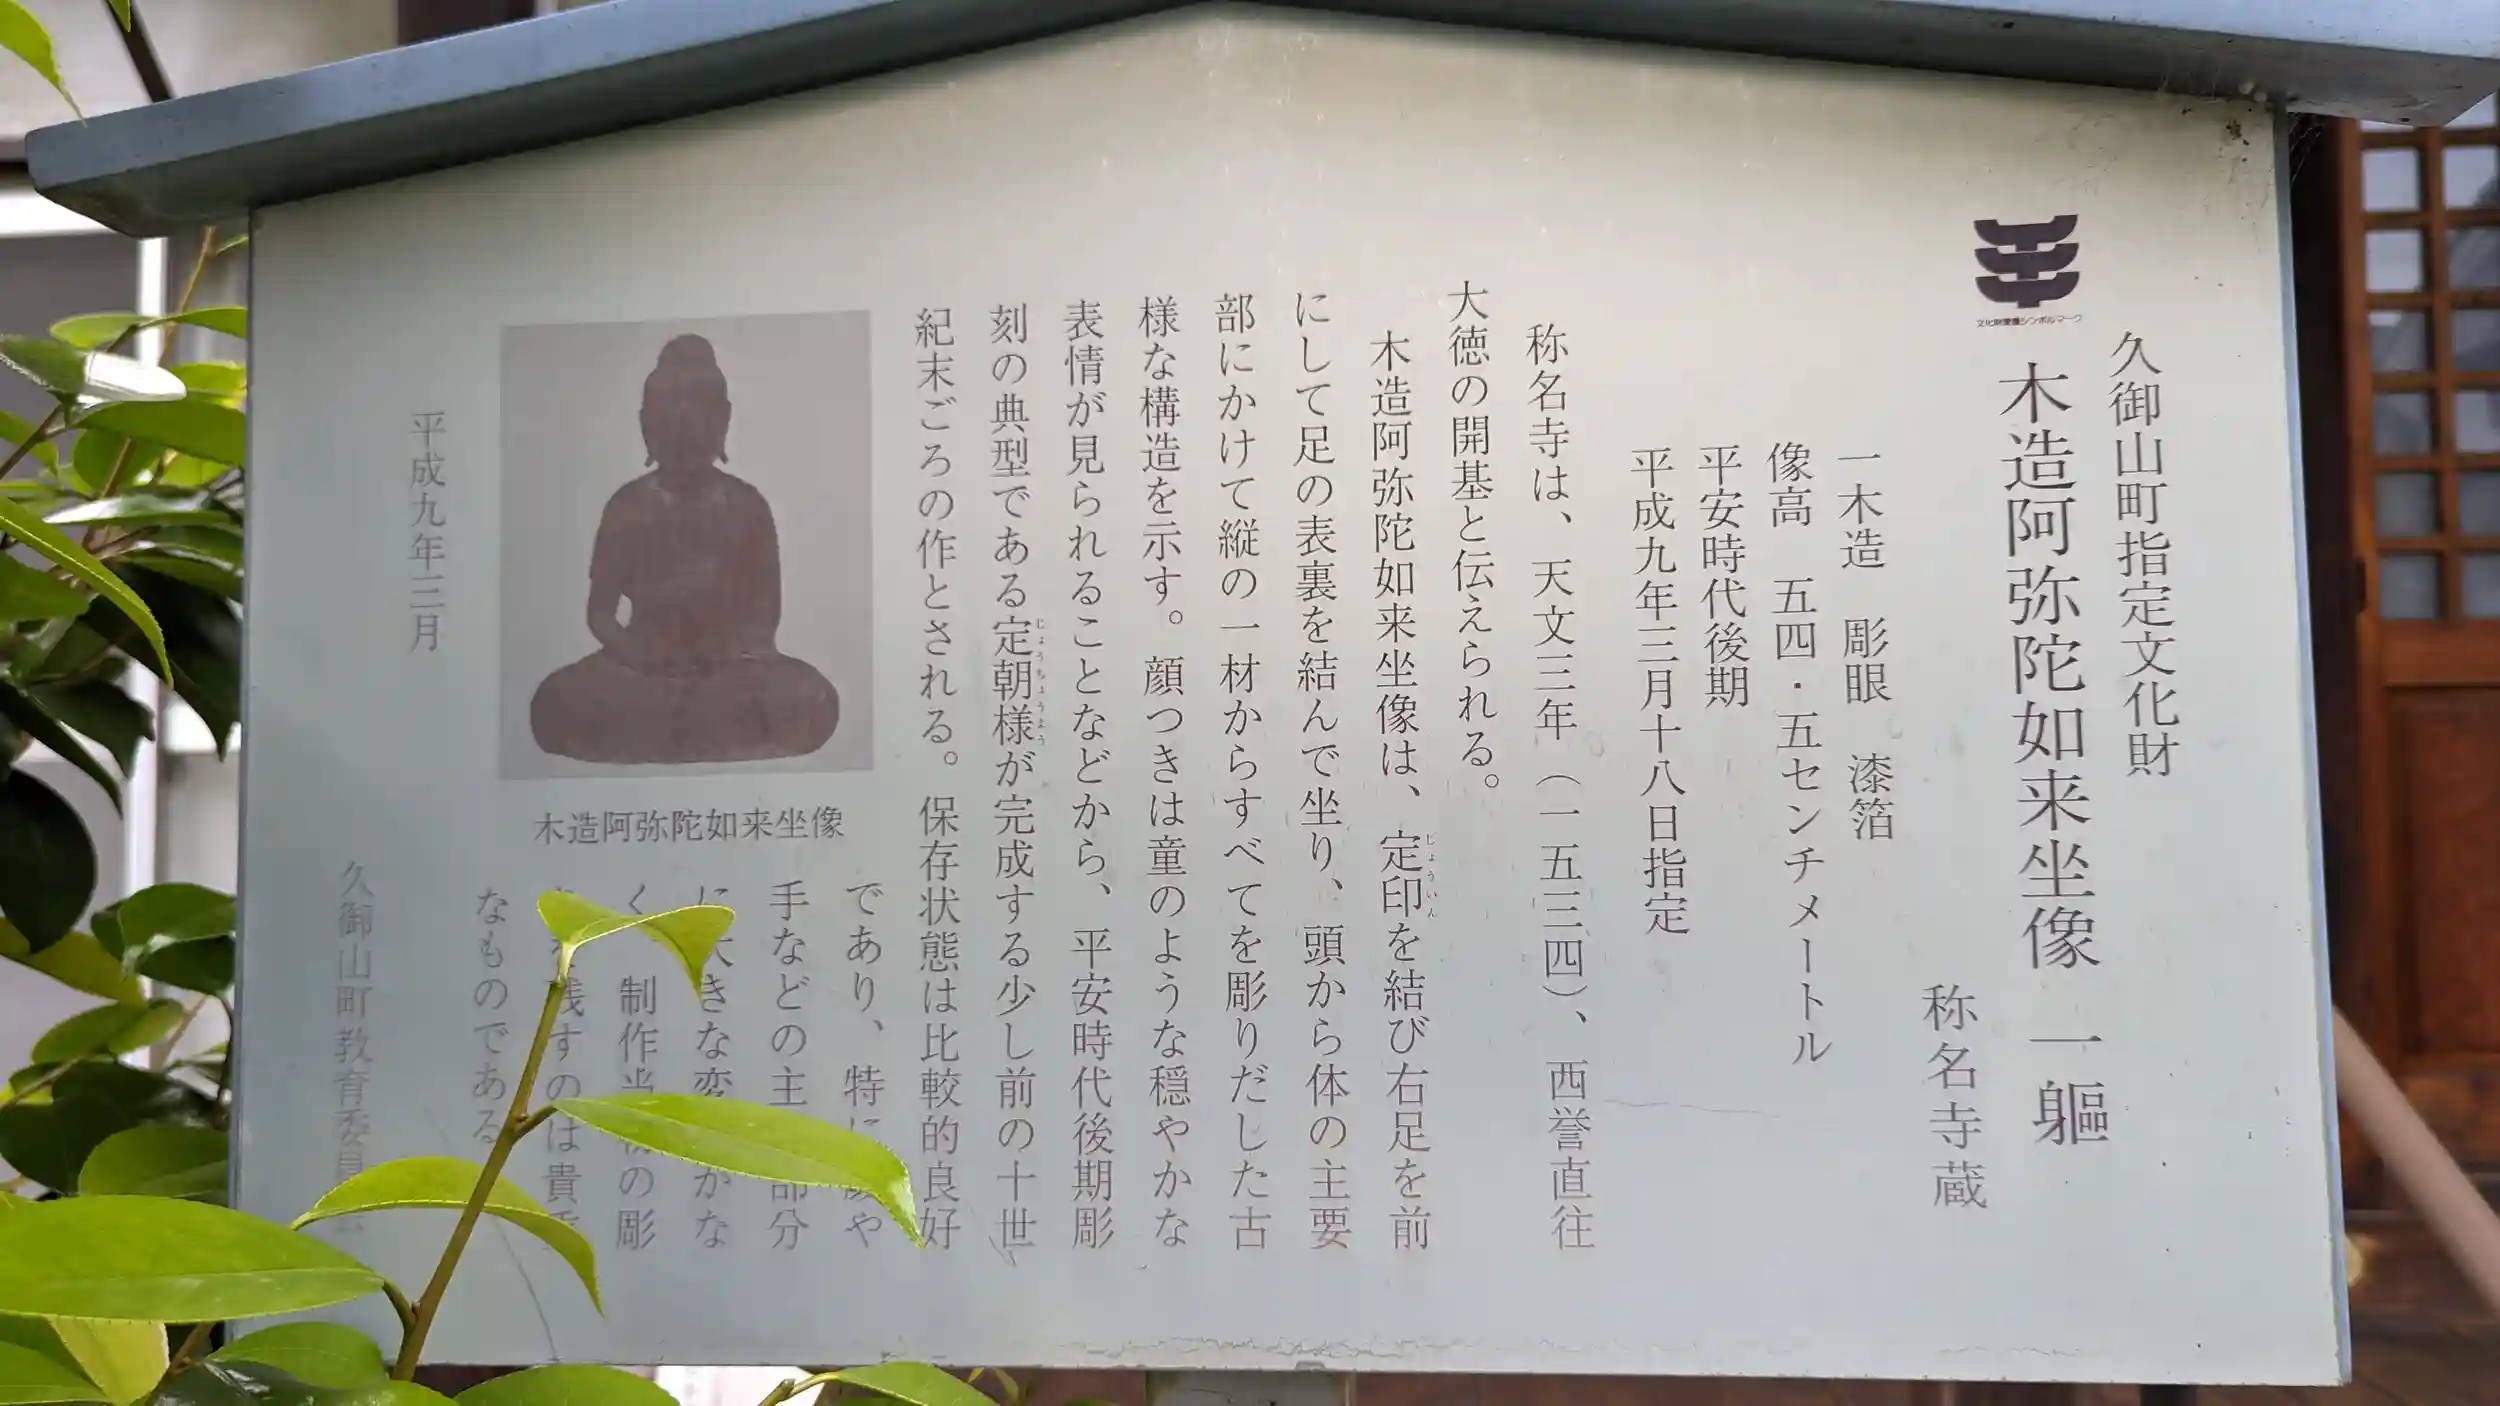 久御山町指定文化財
文化財愛護シンボルマーク
木造阿弥陀如来坐像 一軀
称名寺蔵
一木造 彫眼 漆箔
像高 五四・五センチメートル
平安時代後期
平成九年三月十八日指定
称名寺は、天文三年（一五三四）、西誉直往
大徳の開基と伝えられる。
木造阿弥陀如来坐像は、定印を結び右足を前
じょういん
にして足の表裏を結んで坐り、頭から体の主要
部にかけて縦の一材からすべてを彫りだした古
様な構造を示す。顔つきは童のような穏やかな
表情が見られることなどから、平安時代後期彫
刻の典型である定朝様が完成する少し前の十世
じょうちょうよう
紀末ごろの作とされる。保存状態は比較的良好
であり、特に や
手などの主 部分
大きな変 かな
く 制作当 の彫
を残すのは貴
なものである
木造阿弥陀如来坐像
平成九年三月
久御山町教育委員会